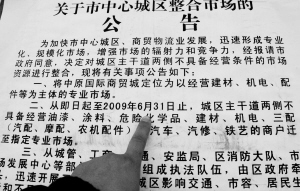 关于市中心城区整合市场的
公告
为加快市中心城区、商贸物流业发展，迅速形成专业
化、规模化市场，增强市场的辐射力和竞争力，经报请市
政府同意，决定对城区主干道两侧不具备经营条件的市场
资源进行整合，现将有关事项公告如下：
一、将中原国际商贸城定位为以经营建材、机电、配
件等为主体的专业市场。
二、从即日起至2009年6月31日止，城区主干道两侧不
具备经营油漆、涂料、危险化学品、建材、机电、三配
（汽配、摩配、农机配件）汽车、汽修、铁艺的商户迁
至指定专业市场。
三、从城管、工商、交通、安监局、区消防大队、市
场发展中心等部
城区影响交通、市容、居民生